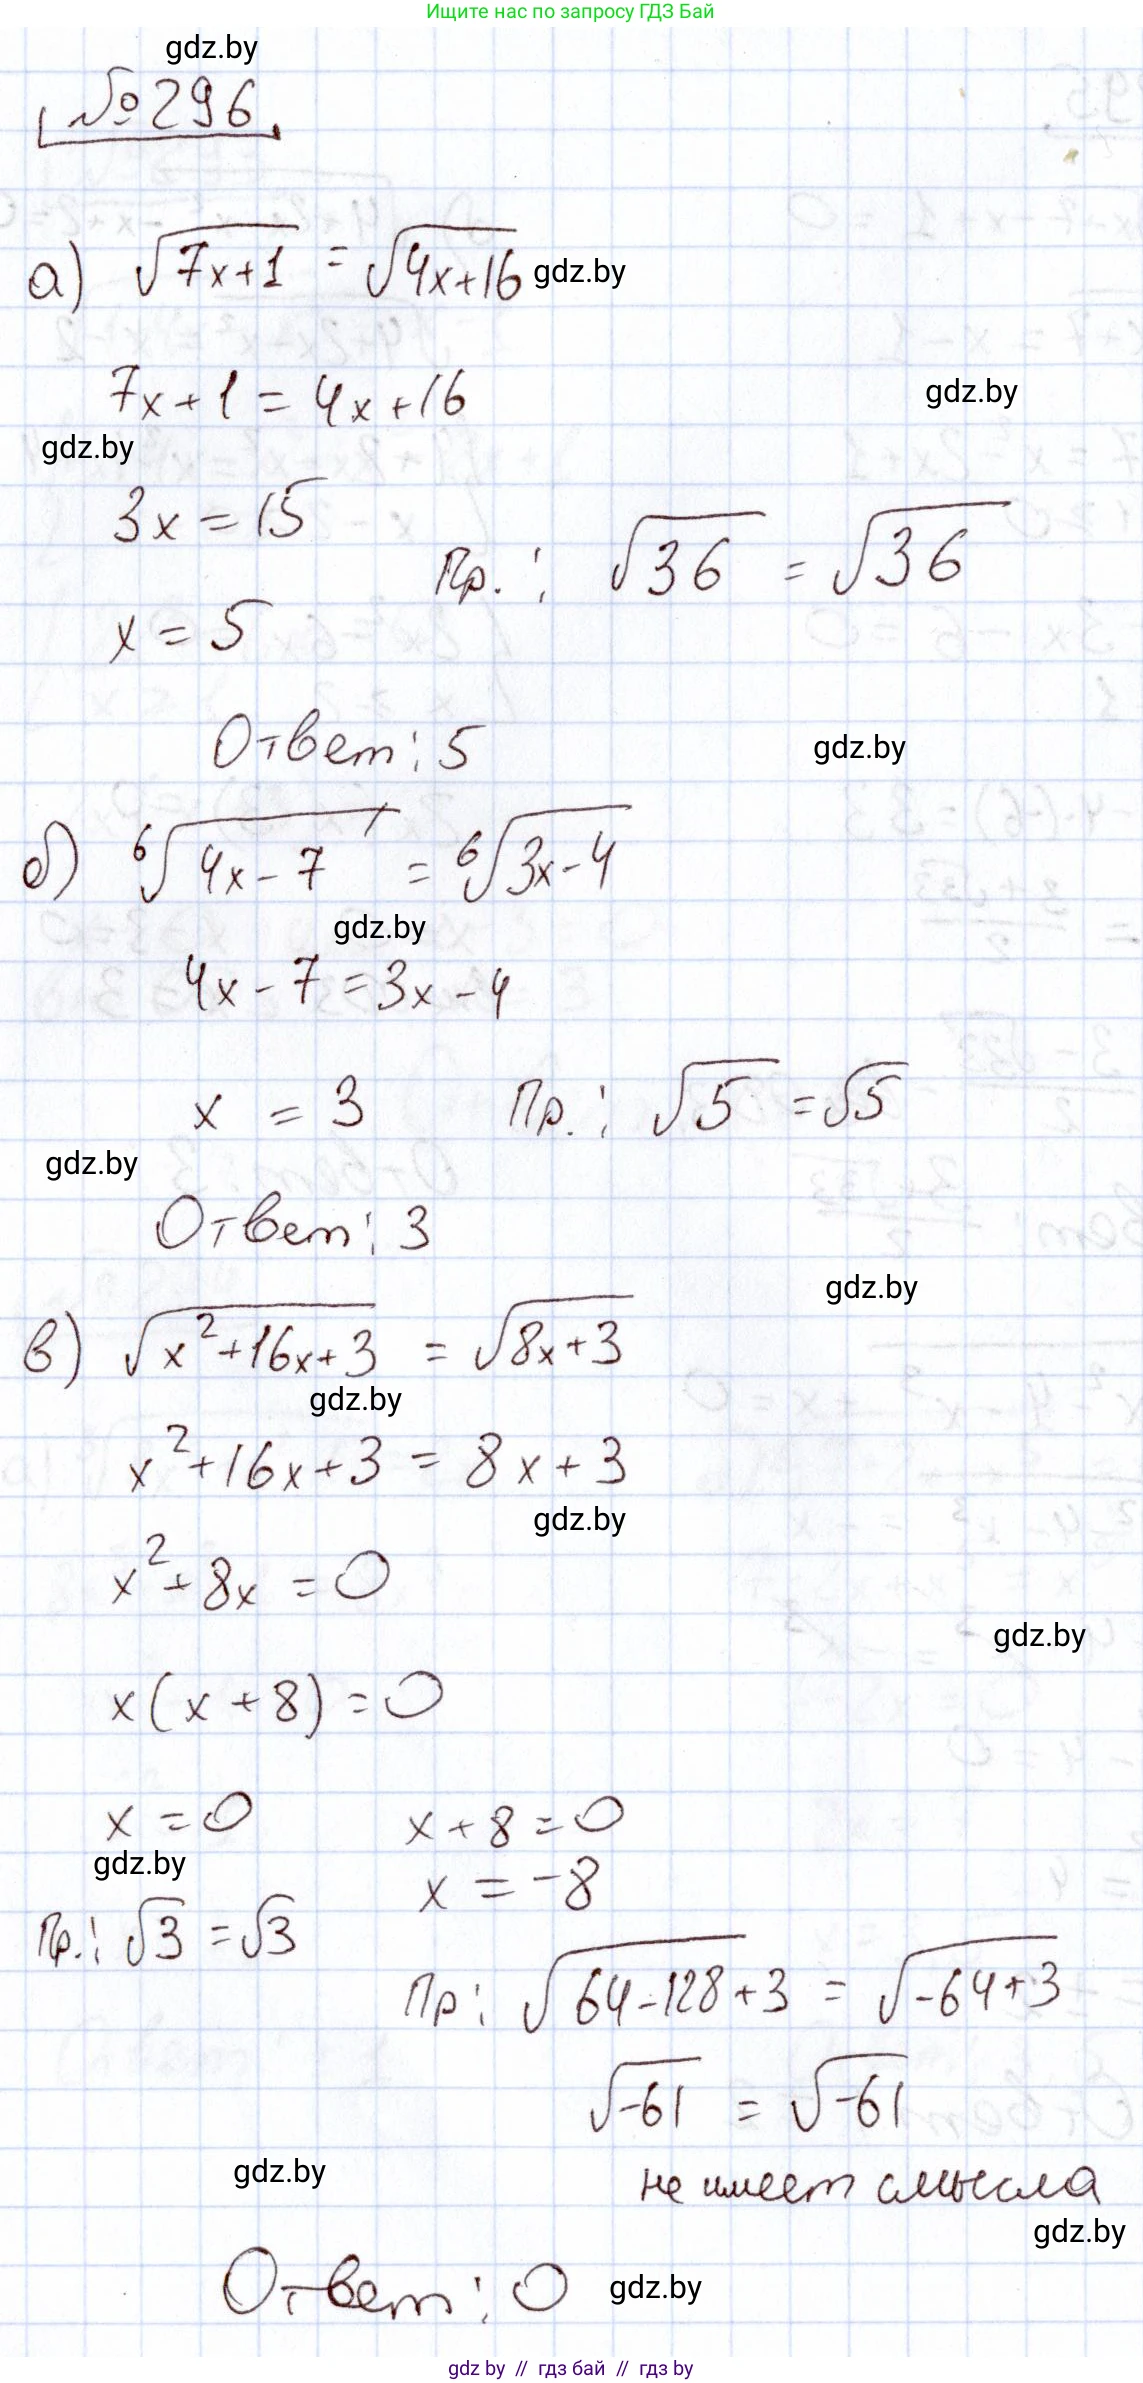 Ищите нас по запросу ГДЗ Бай
gdz.by
№296
а) √(7x+1) = √(4x+16) gdz.by
7x+1 = 4x+16
gdz.by
gdz.by
3x = 15
Пр.: √36 = √36
x = 5
Ответ: 5
gdz.by
б) ⁶√(4x-7) = ⁶√(3x-4)
gdz.by
4x-7=3x-4
x = 3 Пр.: √5 = √5
gdz.by
Ответ: 3
gdz.by
в) √(x²+16x+3) = √(8x+3)
gdz.by
x²+16x+3 = 8x+3
gdz.by
x²+8x = 0
gdz.by
x(x+8)=0
x = 0 x+8=0
gdz.by
x = -8
Пр.: √3 = √3
Пр: √(64-128+3) = √(-64+3)
√-61 = √-61
gdz.by
не имеет смысла
gdz.by
Ответ: 0 gdz.by
gdz by // гдз бай // gdz by